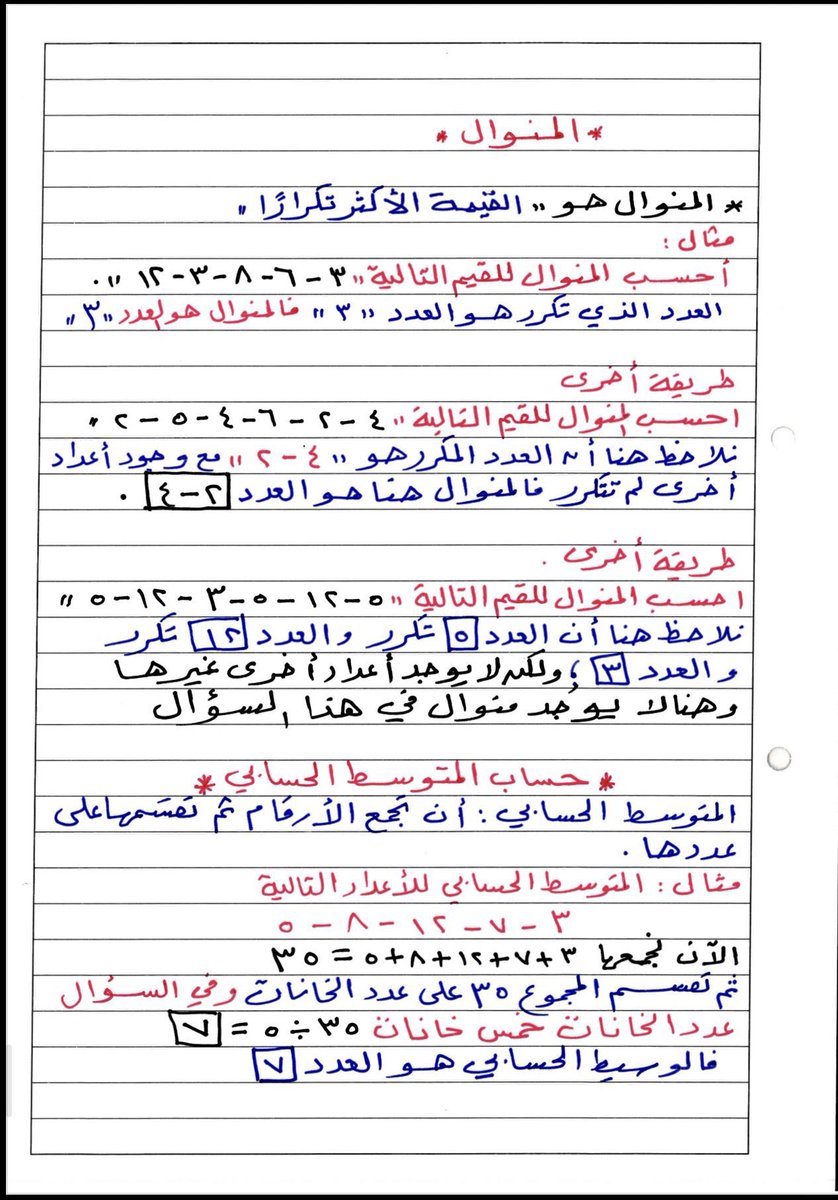 * المنوال *
* المنوال هو " القيمة الأكثر تكرارًا "
مثال :
أحسب المنوال للقيم التالية " ٣ - ٦ - ٨ - ٣ - ١٢ " .
العدد الذي تكرر هو العدد " ٣ " فالمنوال هو العدد " ٣ "
طريقة أخرى
احسب المنوال للقيم التالية " ٤ - ٢ - ٦ - ٤ - ٥ - ٢ "
نلاحظ هنا أن العدد المكرر هو " ٤ - ٢ " مع وجود أعداد
أخرى لم تتكرر فالمنوال هنا هو العدد ٢ - ٤ .
طريقة أخرى .
احسب المنوال للقيم التالية " ٥ - ١٢ - ٥ - ٣ - ١٢ - ٥ "
نلاحظ هنا أن العدد ٥ تكرر والعدد ١٢ تكرر
والعدد ٣ ، ولكن لا يوجد أعداد أخرى غيرها
وهنا لا يوجد منوال في هذا السؤال
* حساب المتوسط الحسابي *
المتوسط الحسابي : أن تجمع الأرقام ثم تقسمها على
عددها .
مثال : المتوسط الحسابي للأعداد التالية
٣ - ٧ - ١٢ - ٨ - ٥
الآن نجمعها ٣ + ٧ + ١٢ + ٨ + ٥ = ٣٥
ثم تقسم المجموع ٣٥ على عدد الخانات وفي السؤال
عدد الخانات خمس خانات ٣٥ ÷ ٥ = ٧
فالوسيط الحسابي هو العدد ٧